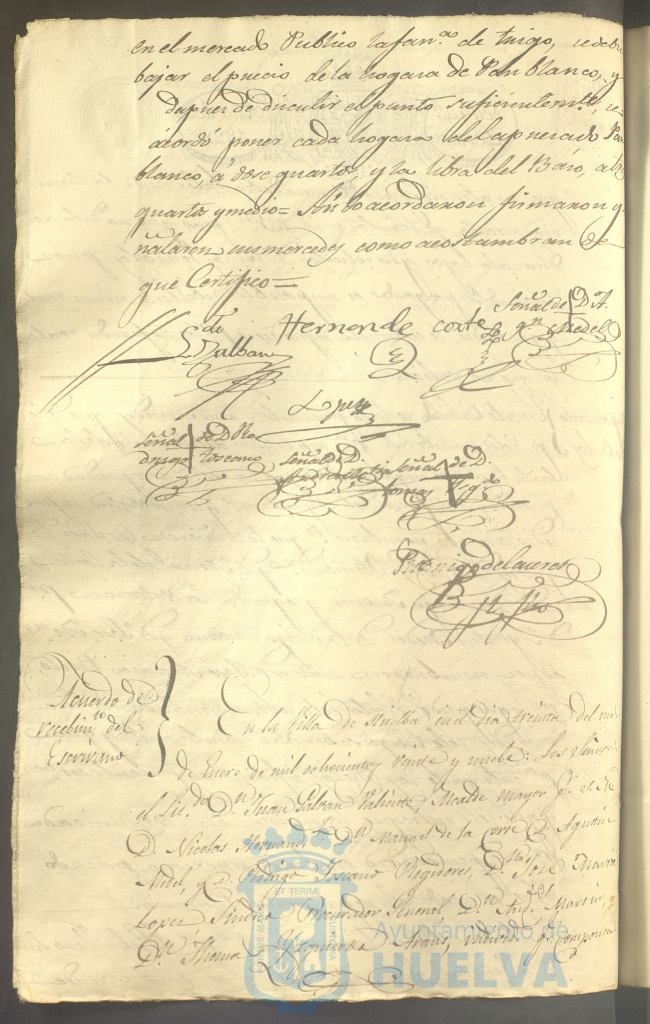 en el mercado Publico la fan.ª de trigo, se debe
bajar el precio de la hogaza de Pan blanco, y
despues de discutir el punto suficientem.te, se
acordó poner cada hogaza del apreciado Pan
blanco, á doce quartos, y la libra del Bazo, a
quartos y medio = Asi lo acordaron firmaron y
ñalaron sus mercedes como acostumbran de
que Certifico =
L.do Galban
Hernandez
Corte
Señal de D. A.
Medel
Lopez
Señal de D. Ro
drigo Toscano
Señal de D.
Señal de D.
Tomas
Acuerdo de
recebim.to del
Escrivano
En la Villa de Huelba en el dia treinta del mes
de Enero de mil ochocientos veinte y nuebe: Los Señores
el Lic.do D.n Juan Galvan Valiente, Alcalde mayor p.r S. M.
D. Nicolas Hernandez D.n Manuel de la Corte D. Agustin
Medel, y D. Rodrigo Toscano Regidores, D.n José Maria
Lopez Sindico Procurador General, D.n Martin, y
D.n Thomas Yzquierdo Diputados q.e componen
ET TERRÆ
Ayuntamiento de
HUELVA